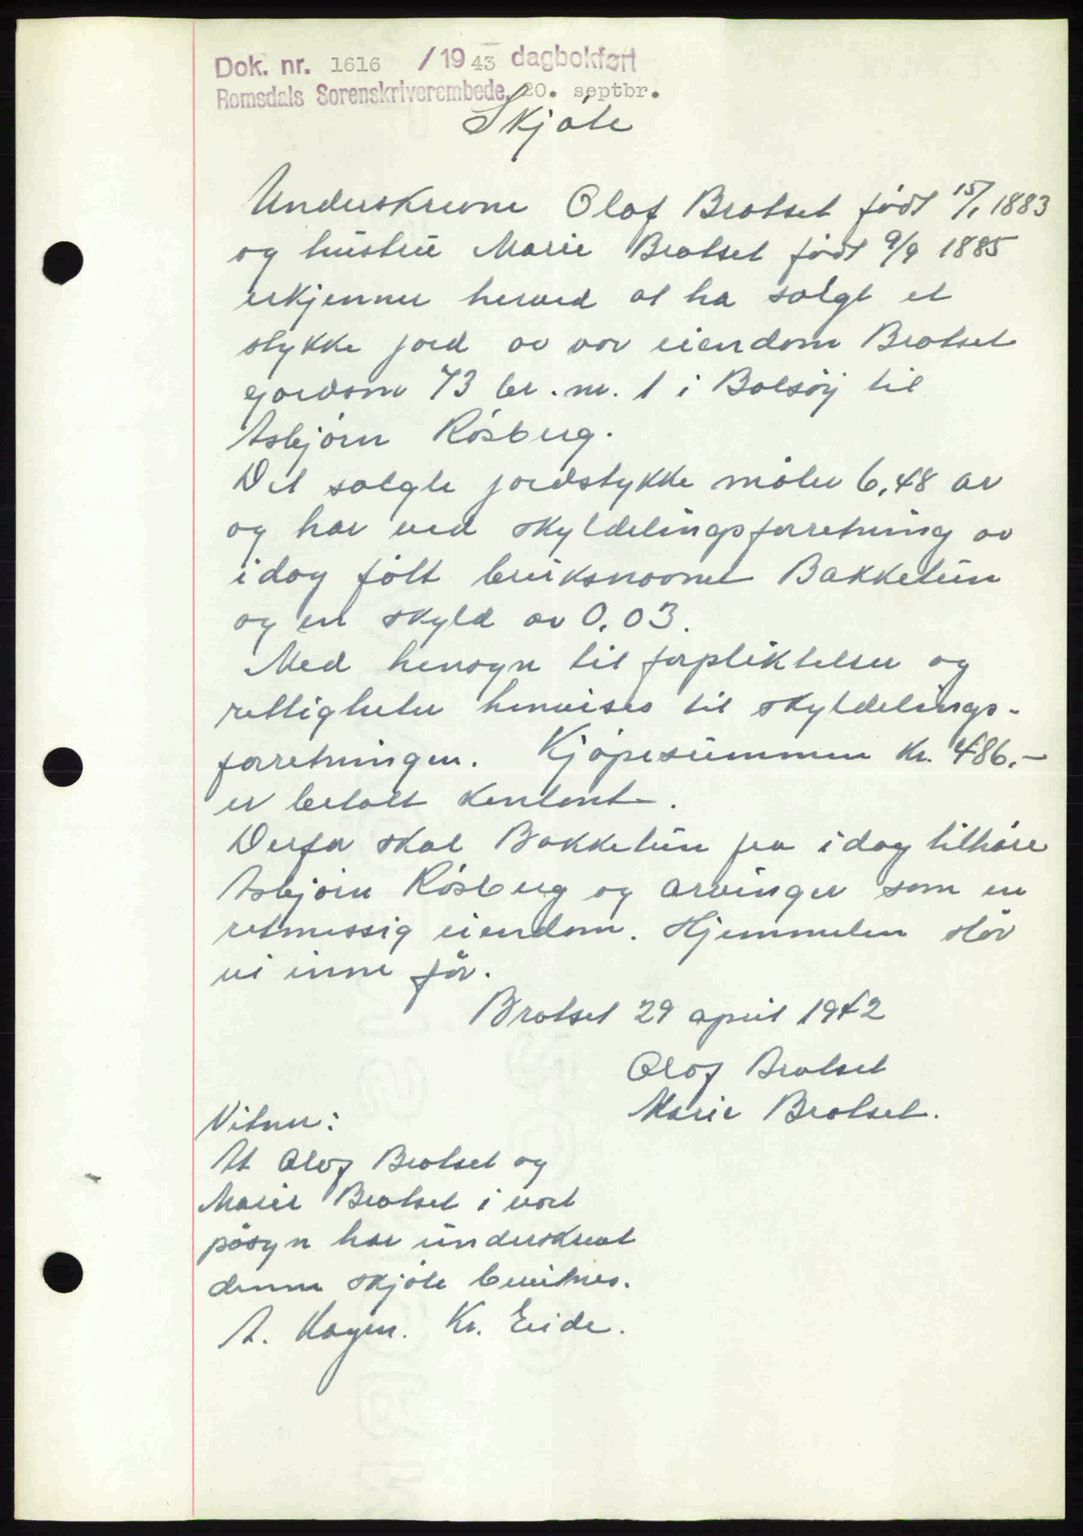 Dok. nr. 1616 / 19 43 dagbokført
Romsdals Sorenskriverembede, 20. septbr.
Skjøte
Underskrevne Olaf Brotset født 15/1 1883
og hustru Marie Brotset født 9/9 1885
erkjenner herved at ha solgt et
stykke jord av vor eiendom Brotset
gardsnr 73 br. nr. 1 i Bolsøy til
Asbjørn Røsberg.
Det solgte jordstykke måler 6,48 ar
og har ved skyldelingsforretning av
idag fått bruksnavnet Bakketun
og en skyld av 0,03.
Med hensyn til forpliktelser og
rettigheter henvises til skyldelings-
forretningen. Kjøpesummen kr. 486.-
er betalt kontant.
Derfor skal Bakketun fra idag tilhøre
Asbjørn Røsberg og arvinger som en
retmessig eiendom. Hjemmelen står
vi inne før.
Brotset 29 april 1942
Olaf Brotset
Marie Brotset.
Vitner:
At Olaf Brotset og
Marie Brotset i vort
påsyn har underskrevet
denne skjøte bevitnes.
A. Hagen. Kr. Eide.